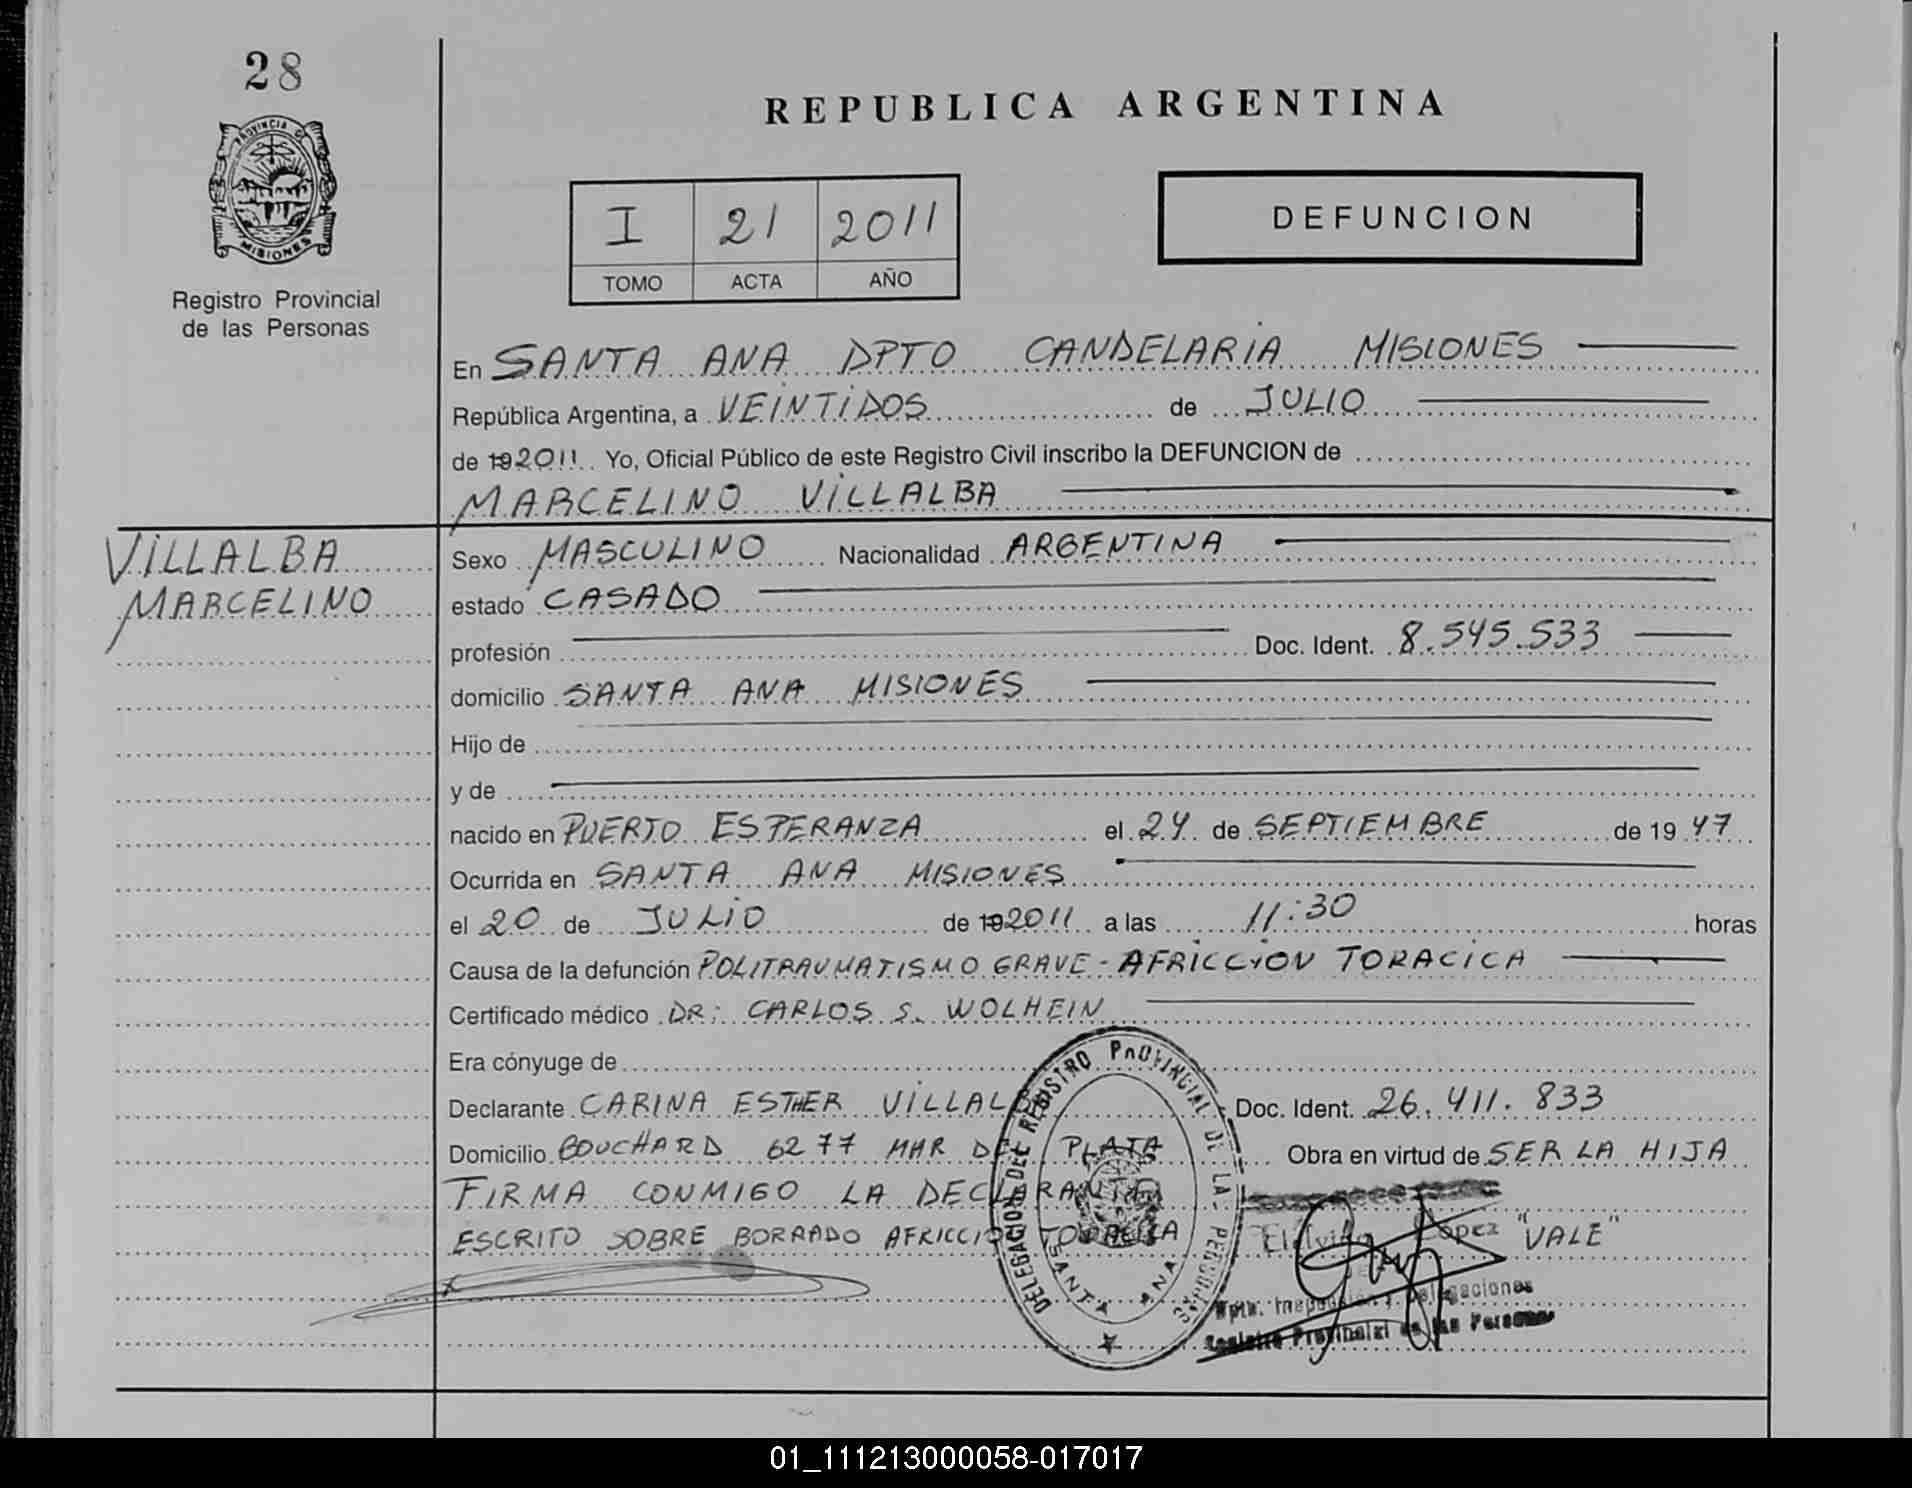 28
PROVINCIA DE
MISIONES
Registro Provincial
de las Personas
REPUBLICA ARGENTINA
I 21 2011
TOMO ACTA AÑO
DEFUNCION
En SANTA ANA DPTO CANDELARIA MISIONES
República Argentina, a VEINTIDOS de JULIO
de 192011 Yo, Oficial Público de este Registro Civil inscribo la DEFUNCION de
MARCELINO VILLALBA
VILLALBA
MARCELINO
Sexo MASCULINO Nacionalidad ARGENTINA
estado CASADO
profesión Doc. Ident. 8.545.533
domicilio SANTA ANA MISIONES
Hijo de
y de
nacido en PUERTO ESPERANZA el 24 de SEPTIEMBRE de 1947
Ocurrida en SANTA ANA MISIONES
el 20 de JULIO de 192011 a las 11:30 horas
Causa de la defunción POLITRAUMATISMO GRAVE - AFRICCION TORACICA
Certificado médico DR: CARLOS S. WOLHEIN
Era cónyuge de
Declarante CARINA ESTHER VILLAL Doc. Ident. 26.411.833
Domicilio BOUCHARD 6277 MAR DEL PLATA Obra en virtud de SER LA HIJA
FIRMA CONMIGO LA DECLARANTE
ESCRITO SOBRE BORRADO AFRICCION TORACICA "VALE"
DELEGACION DEL REGISTRO PROVINCIAL DE LAS PERSONAS
SANTA ANA
López
Dpto. Inspección y Delegaciones
Registro Provincial de las Personas
01_111213000058-017017